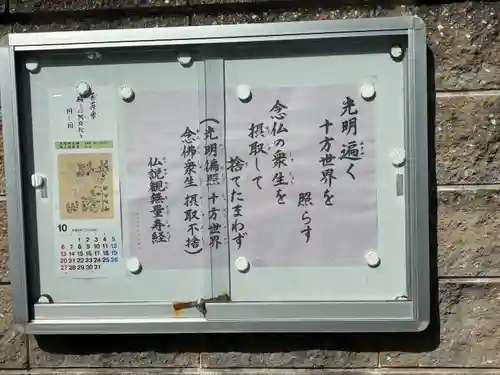 光明遍く
十方世界を
照らす
念仏の衆生を
摂取して
捨てたまわず
(光明徧照 十方世界
念佛衆生 摂取不捨)
仏説観無量寿経
10
1 2 3 4 5
6 7 8 9 10 11 12
13 14 15 16 17 18 19
20 21 22 23 24 25 26
27 28 29 30 31